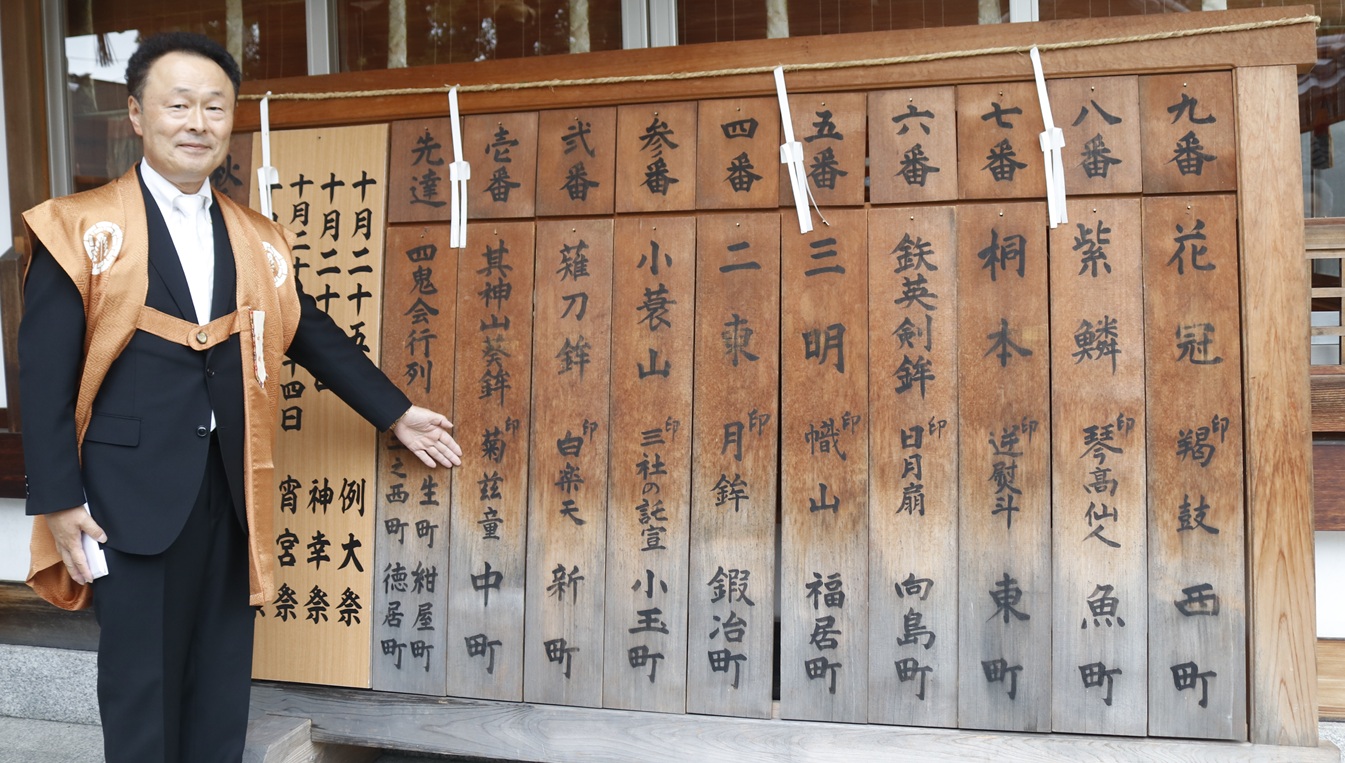 秋
十月二十五
例大祭
十月二十
神幸祭
十月二
四日
宵宮祭
先達
四鬼会行列
生町 紺屋町
之西町 徳居町
壱番
其神山葵鉾
印
菊兹童
中町
弐番
薙刀鉾
印
白楽天
新町
参番
小蓑山
印
三社の託宣
小玉町
四番
二東
月鉾
印
鍛冶町
五番
三明
幟山
印
福居町
六番
鉄英剣鉾
印
日月扇
向島町
七番
桐本
印
逆熨斗
東町
八番
紫鱗
印
琴高仙人
魚町
九番
花冠
印
羯鼓
西町